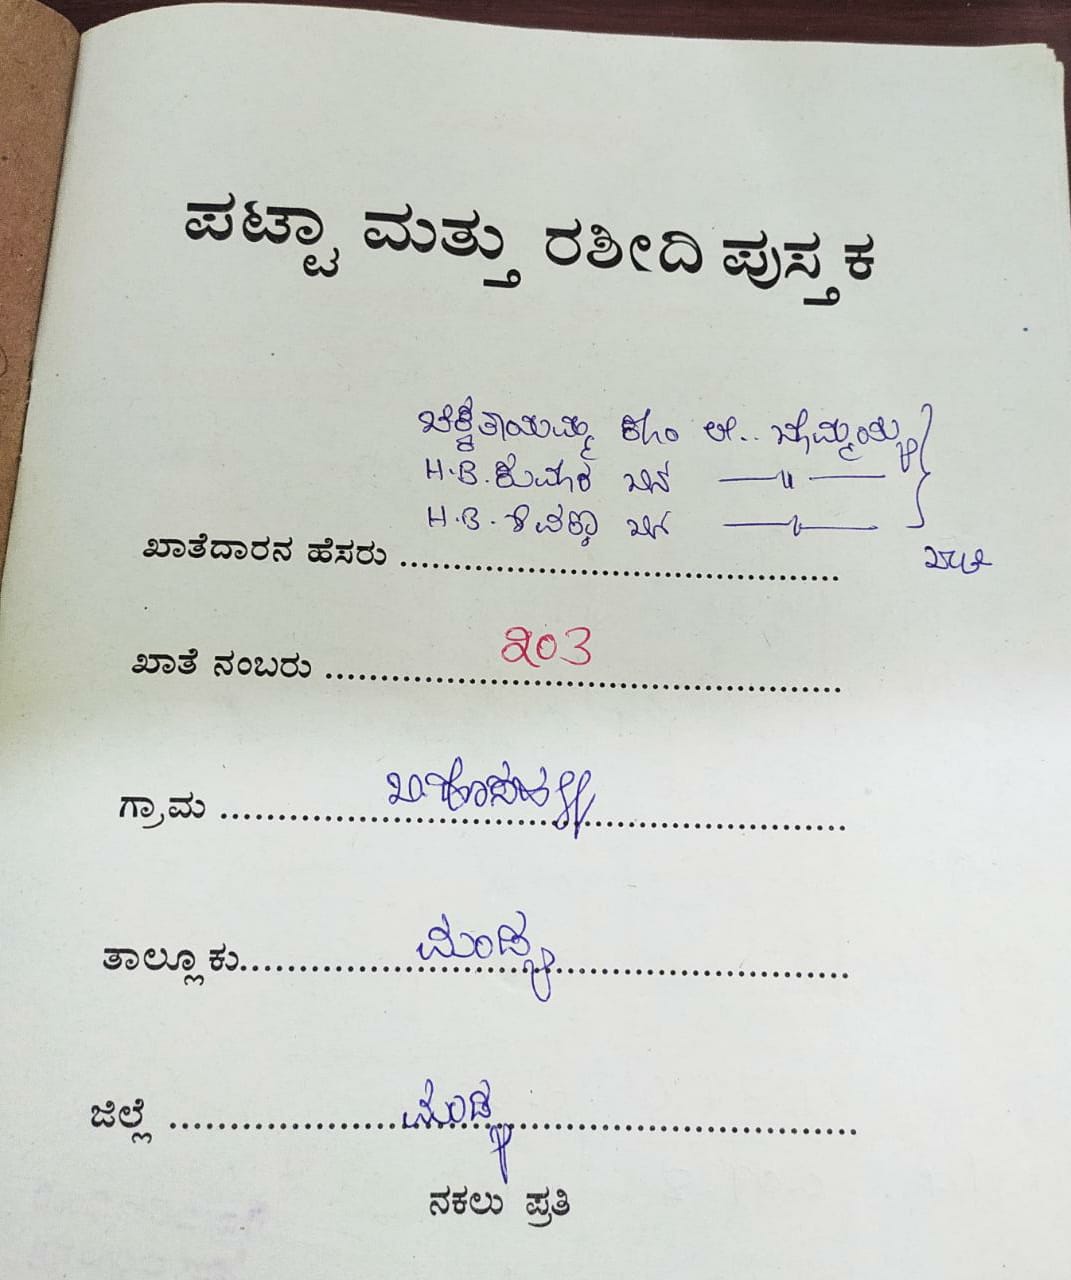 ಪಟ್ಟಾ ಮತ್ತು ರಶೀದಿ ಪುಸ್ತಕ
ಚಿಕ್ಕತಾಯಮ್ಮ ಕೋಂ ಲೇ.. ಬೊಮ್ಮಯ್ಯ
H.B. ಕುಮಾರ ಬಿನ್ —〃—
H.B. ಶಿವಣ್ಣ ಬಿನ್ —〃—
ಖಾತೆದಾರನ ಹೆಸರು
ಖಾತೆ ನಂಬರು ೩೦3
ಗ್ರಾಮ
ತಾಲ್ಲೂಕು ಮಂಡ್ಯ
ಜಿಲ್ಲೆ ಮಂಡ್ಯ
ನಕಲು ಪ್ರತಿ